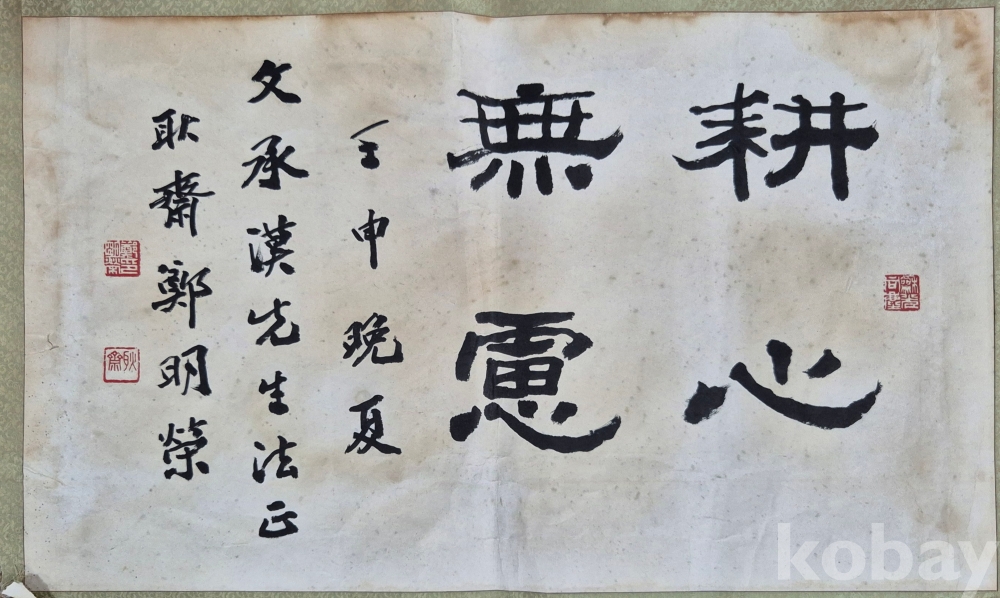 耕心
無慮
壬申晚夏
文承漢先生法正
耿齋鄭明榮
耿齋
kobay